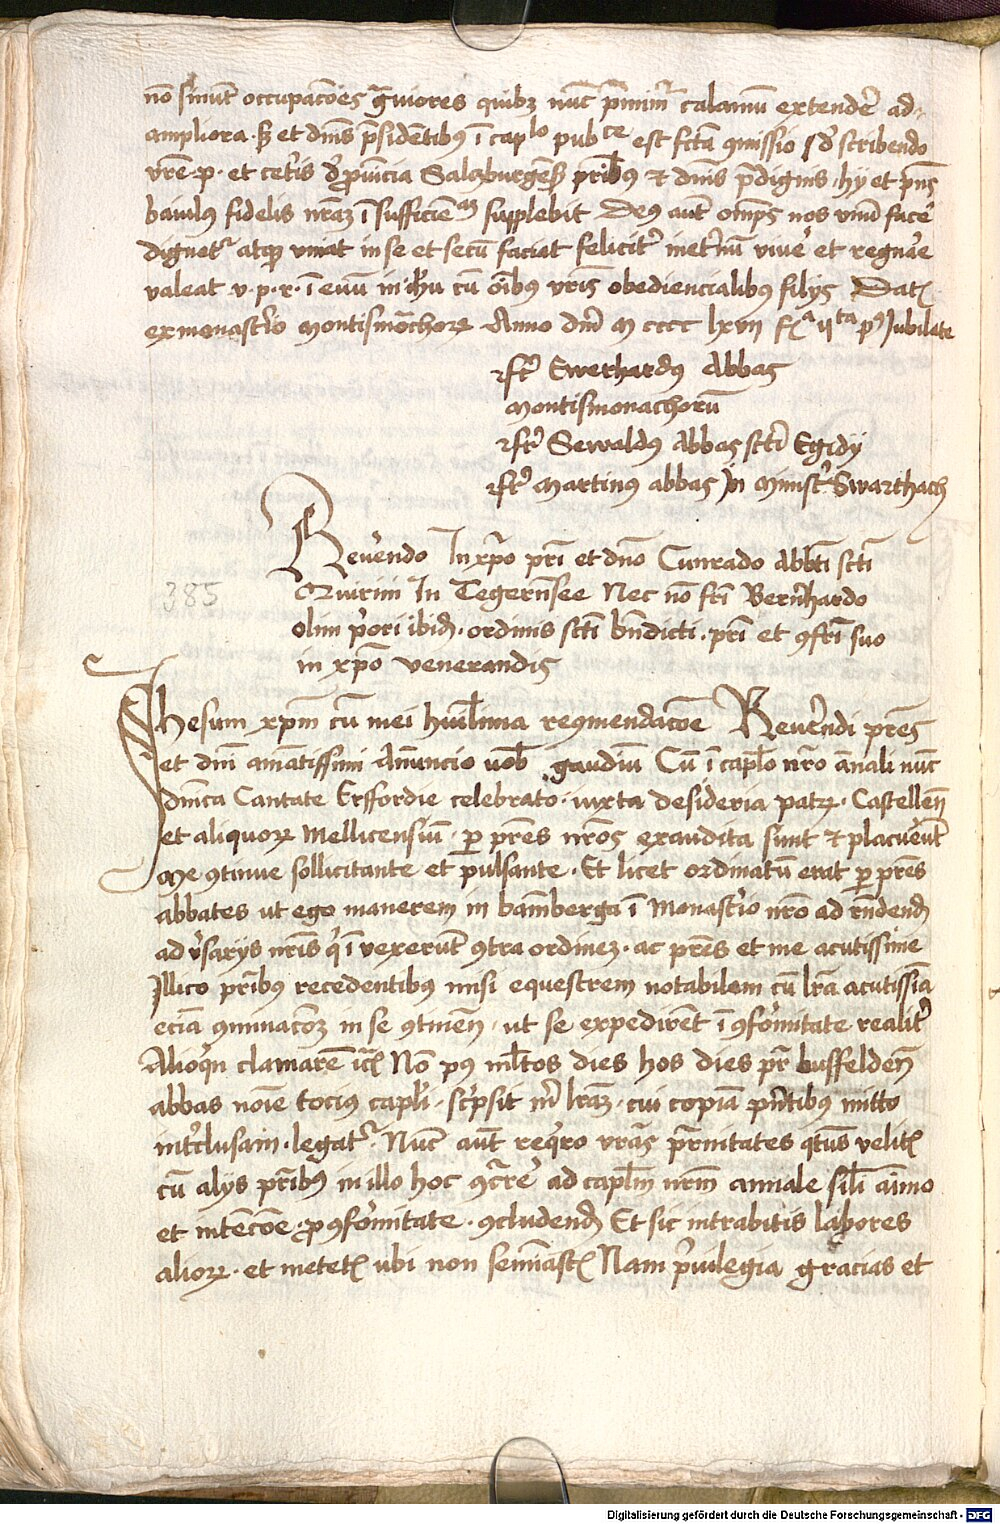 nō sinūt occupacōes ġuiores quibꝫ nūc p̄mimr̄ calamū extendē ad-
ampliora · sꝫ et dnīs p̄sidētibus ī caplo pubce est fcta ꝯmissio sꝺ scribendo
vr̄e · p · et cetīs ꝺ ꝓuincia Salczburgens̄ prībus & dnīs p̄dignis · hy et p̄ns
baiulus fidelis nr̄aꝫ īsufficiēam supplebit Deus aut̄ omp̄s nos vnū facē
dignetr̄ atqꝫ vniat in se et secū faciat felicit̄ inet̄nū viuē et regnāe
valeat v · p · r · ī euū in ihū cū oībus vrīs obediencialibus filijs Dat̄
ex monast̄io Montismōchoꝝ Anno dnī M cccc lxvii fa iita pꝰ Jubilate
Fr̄ Ewerhardus Abbas
Montismonachorū
Fr̄ Sewaldus Abbas sctī Egidij
Fr̄ Martinus abbas in Minist̄ Swarthach
Reuēndo In xp̄o prī et dn̄o Cunrado Abbt̄i sctī
385
Quirini In Tegern̄see Nec nō frī Bern̄hardo
olim p̄ori ibid̄ · ordinis sctī bn̄dicti · prī et ꝯfrī suo
in xp̄o venerandis
Ihesum xp̄m cū mei huīllima reꝯmendacōe Reuēndi prēs
et dnī amātissimi Annuncio vob̄ gaudiū Cū ī capl̄o nr̄o ānali nūc
dnīca Cantate Erffordie celebrato · iuxta desideria patꝝ · Castellen̄
et aliquoꝝ Mellicensiū · ꝑ prēs nrōs exaudita sunt & placuēūt
Me ꝯtinue sollicitante et pulsante · Et licet ordinatū erat ꝑ prēs
abbates ut ego manerem in bāmberga ī Monast̄io nr̄o ad rn̄dend̄
adūsarijs nrīs q̄ īuexerūt ꝯtra ordineꝫ · ac prēs et me acutissime
Illico prībus recedentibus misi equestrem notabilem cū lr̄a acutissīa
eciā ꝯminacōeꝫ in se ꝯtinen̄ · ut se expedirēt ī ꝯformitate realit̄
Alioq̄n clamarē ītꝫ Nō pꝰ ml̄tos dies hos dies pr̄ bursfelden̄
abbas noīe tocius capl̄i · sc̄psit m̄ lr̄aꝫ · cui copiā pn̄tibus mitto
int̄clusam · legatr̄ · Nūc aut̄ req̄ro vrās pr̄nitates qt̄us velit̄
cū alijs prībus in illo hoc ꝯcr̄ē ad capl̄m nr̄m annale sīli āimo
et intēcōe ꝓ ꝯformitate · ꝯcludend̄ Et sic intrabitis labores
alioꝝ · et metet̄ ubi non semīast̄ Nam p̄uilegia gracias et
Digitalisierung gefördert durch die Deutsche Forschungsgemeinschaft - DFG